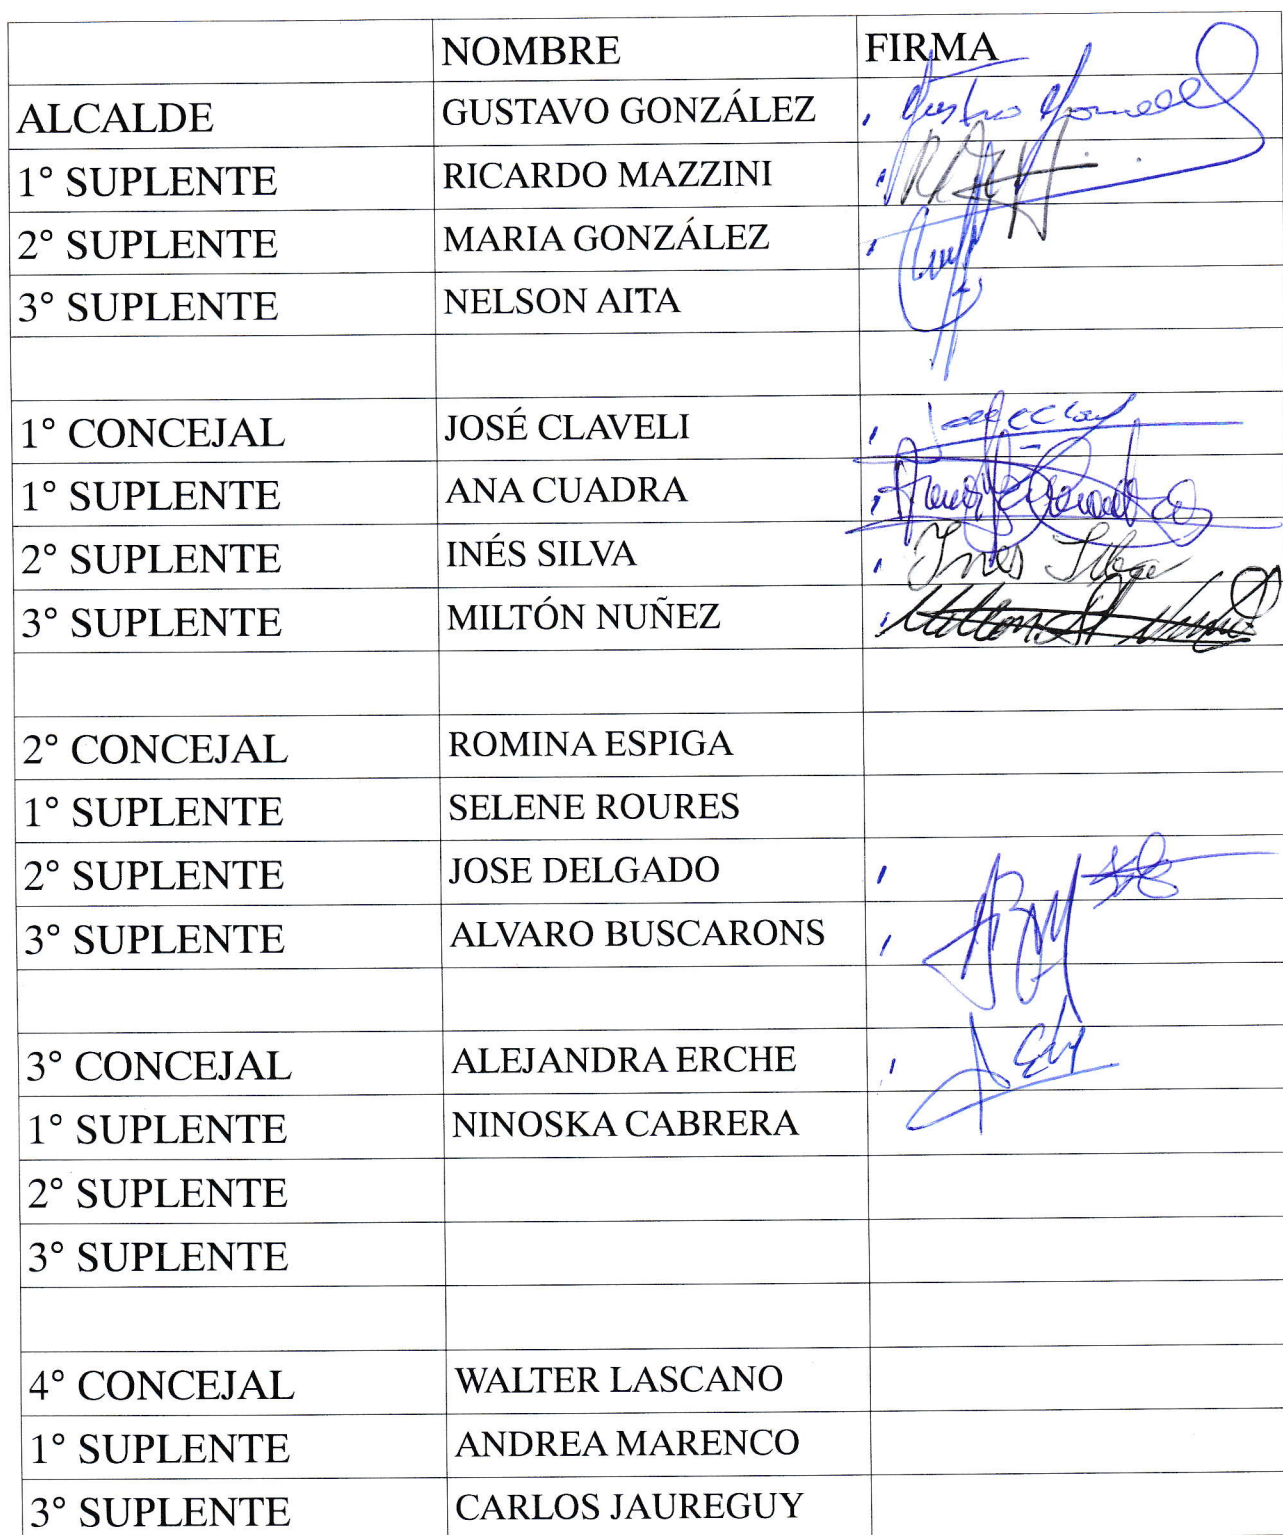 NOMBRE FIRMA
ALCALDE GUSTAVO GONZÁLEZ
1° SUPLENTE RICARDO MAZZINI
2° SUPLENTE MARIA GONZÁLEZ
3° SUPLENTE NELSON AITA
1° CONCEJAL JOSÉ CLAVELI
1° SUPLENTE ANA CUADRA
2° SUPLENTE INÉS SILVA Inés Silva
3° SUPLENTE MILTÓN NUÑEZ Milton
2° CONCEJAL ROMINA ESPIGA
1° SUPLENTE SELENE ROURES
2° SUPLENTE JOSE DELGADO
3° SUPLENTE ALVARO BUSCARONS
3° CONCEJAL ALEJANDRA ERCHE
1° SUPLENTE NINOSKA CABRERA
2° SUPLENTE
3° SUPLENTE
4° CONCEJAL WALTER LASCANO
1° SUPLENTE ANDREA MARENCO
3° SUPLENTE CARLOS JAUREGUY